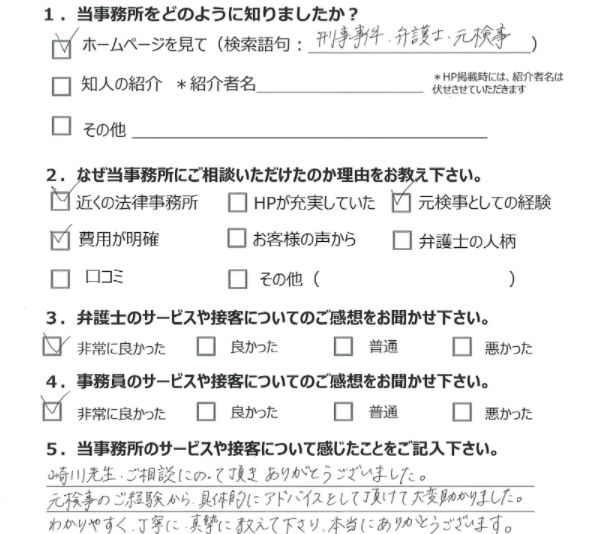 1．当事務所をどのように知りましたか？
ホームページを見て（検索語句：刑事事件．弁護士．元検事）
知人の紹介　＊紹介者名
＊HP掲載時には、紹介者名は
伏せさせていただきます
その他
2．なぜ当事務所にご相談いただけたのか理由をお教え下さい。
近くの法律事務所　HPが充実していた　元検事としての経験
費用が明確　お客様の声から　弁護士の人柄
口コミ　その他（　　　）
3．弁護士のサービスや接客についてのご感想をお聞かせ下さい。
非常に良かった　良かった　普通　悪かった
4．事務員のサービスや接客についてのご感想をお聞かせ下さい。
非常に良かった　良かった　普通　悪かった
5．当事務所のサービスや接客について感じたことをご記入下さい。
﨑川先生．ご相談にのって頂きありがとうございました。
元検事のご経験から．具体的にアドバイスとして頂けて大変助かりました。
わかりやすく．丁寧に．真摯に教えて下さり．本当にありがとうございます。